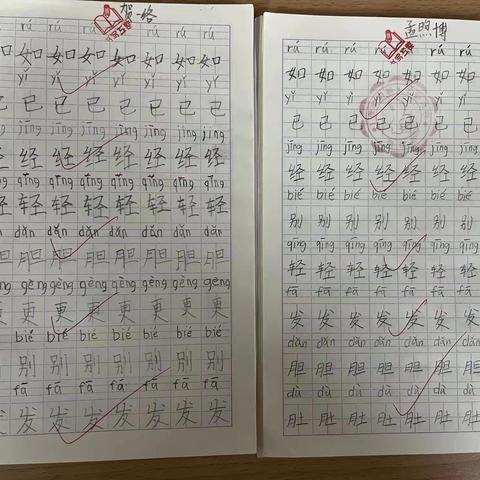 rú rú rú rú rú rú rú
如 如 如 如 如 如 如
yǐ yǐ yǐ yǐ yǐ yǐ yǐ
已 已 已 已 已 已 已
jīng jīng jīng jīng jīng jīng jīng
经 经 经 经 经 经 经
qīng qīng qīng qīng qīng qīng qīng
轻 轻 轻 轻 轻 轻 轻
dǎn dǎn dǎn dǎn dǎn dǎn dǎn
胆 胆 胆 胆 胆 胆 胆
gèng gèng gèng gèng gèng gèng gèng
更 更 更 更 更 更 更
bié bié bié bié bié bié bié
别 别 别 别 别 别 别
fā fā fā fā fā fā fā
发 发 发 发 发 发 发
rú rú rú rú rú rú rú
如 如 如 如 如 如 如
yǐ yǐ yǐ yǐ yǐ yǐ yǐ
已 已 已 已 已 已 已
jīng jīng jīng jīng jīng jīng jīng
经 经 经 经 经 经 经
bié bié bié bié bié bié bié
别 别 别 别 别 别 别
qīng qīng qīng qīng qīng qīng qīng
轻 轻 轻 轻 轻 轻 轻
fā fā fā fā fā fā fā
发 发 发 发 发 发 发
dǎn dǎn dǎn dǎn dǎn dǎn dǎn
胆 胆 胆 胆 胆 胆 胆
dù dù dù dù dù dù dù
肚 肚 肚 肚 肚 肚 肚